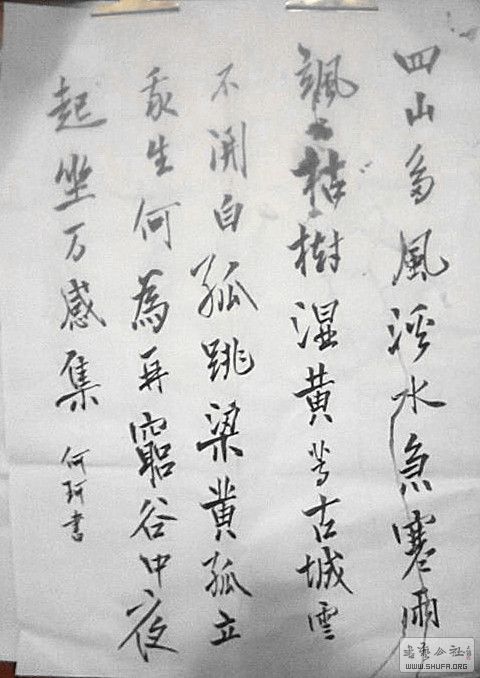 四山多風溪水急寒雨
颯々枯樹湿黄蒿古城雲
不開白孤跳梁黄孤立
我生何為再窮谷中夜
起坐万感集 何珂書
書藝公社
WWW.SHUFA.ORG